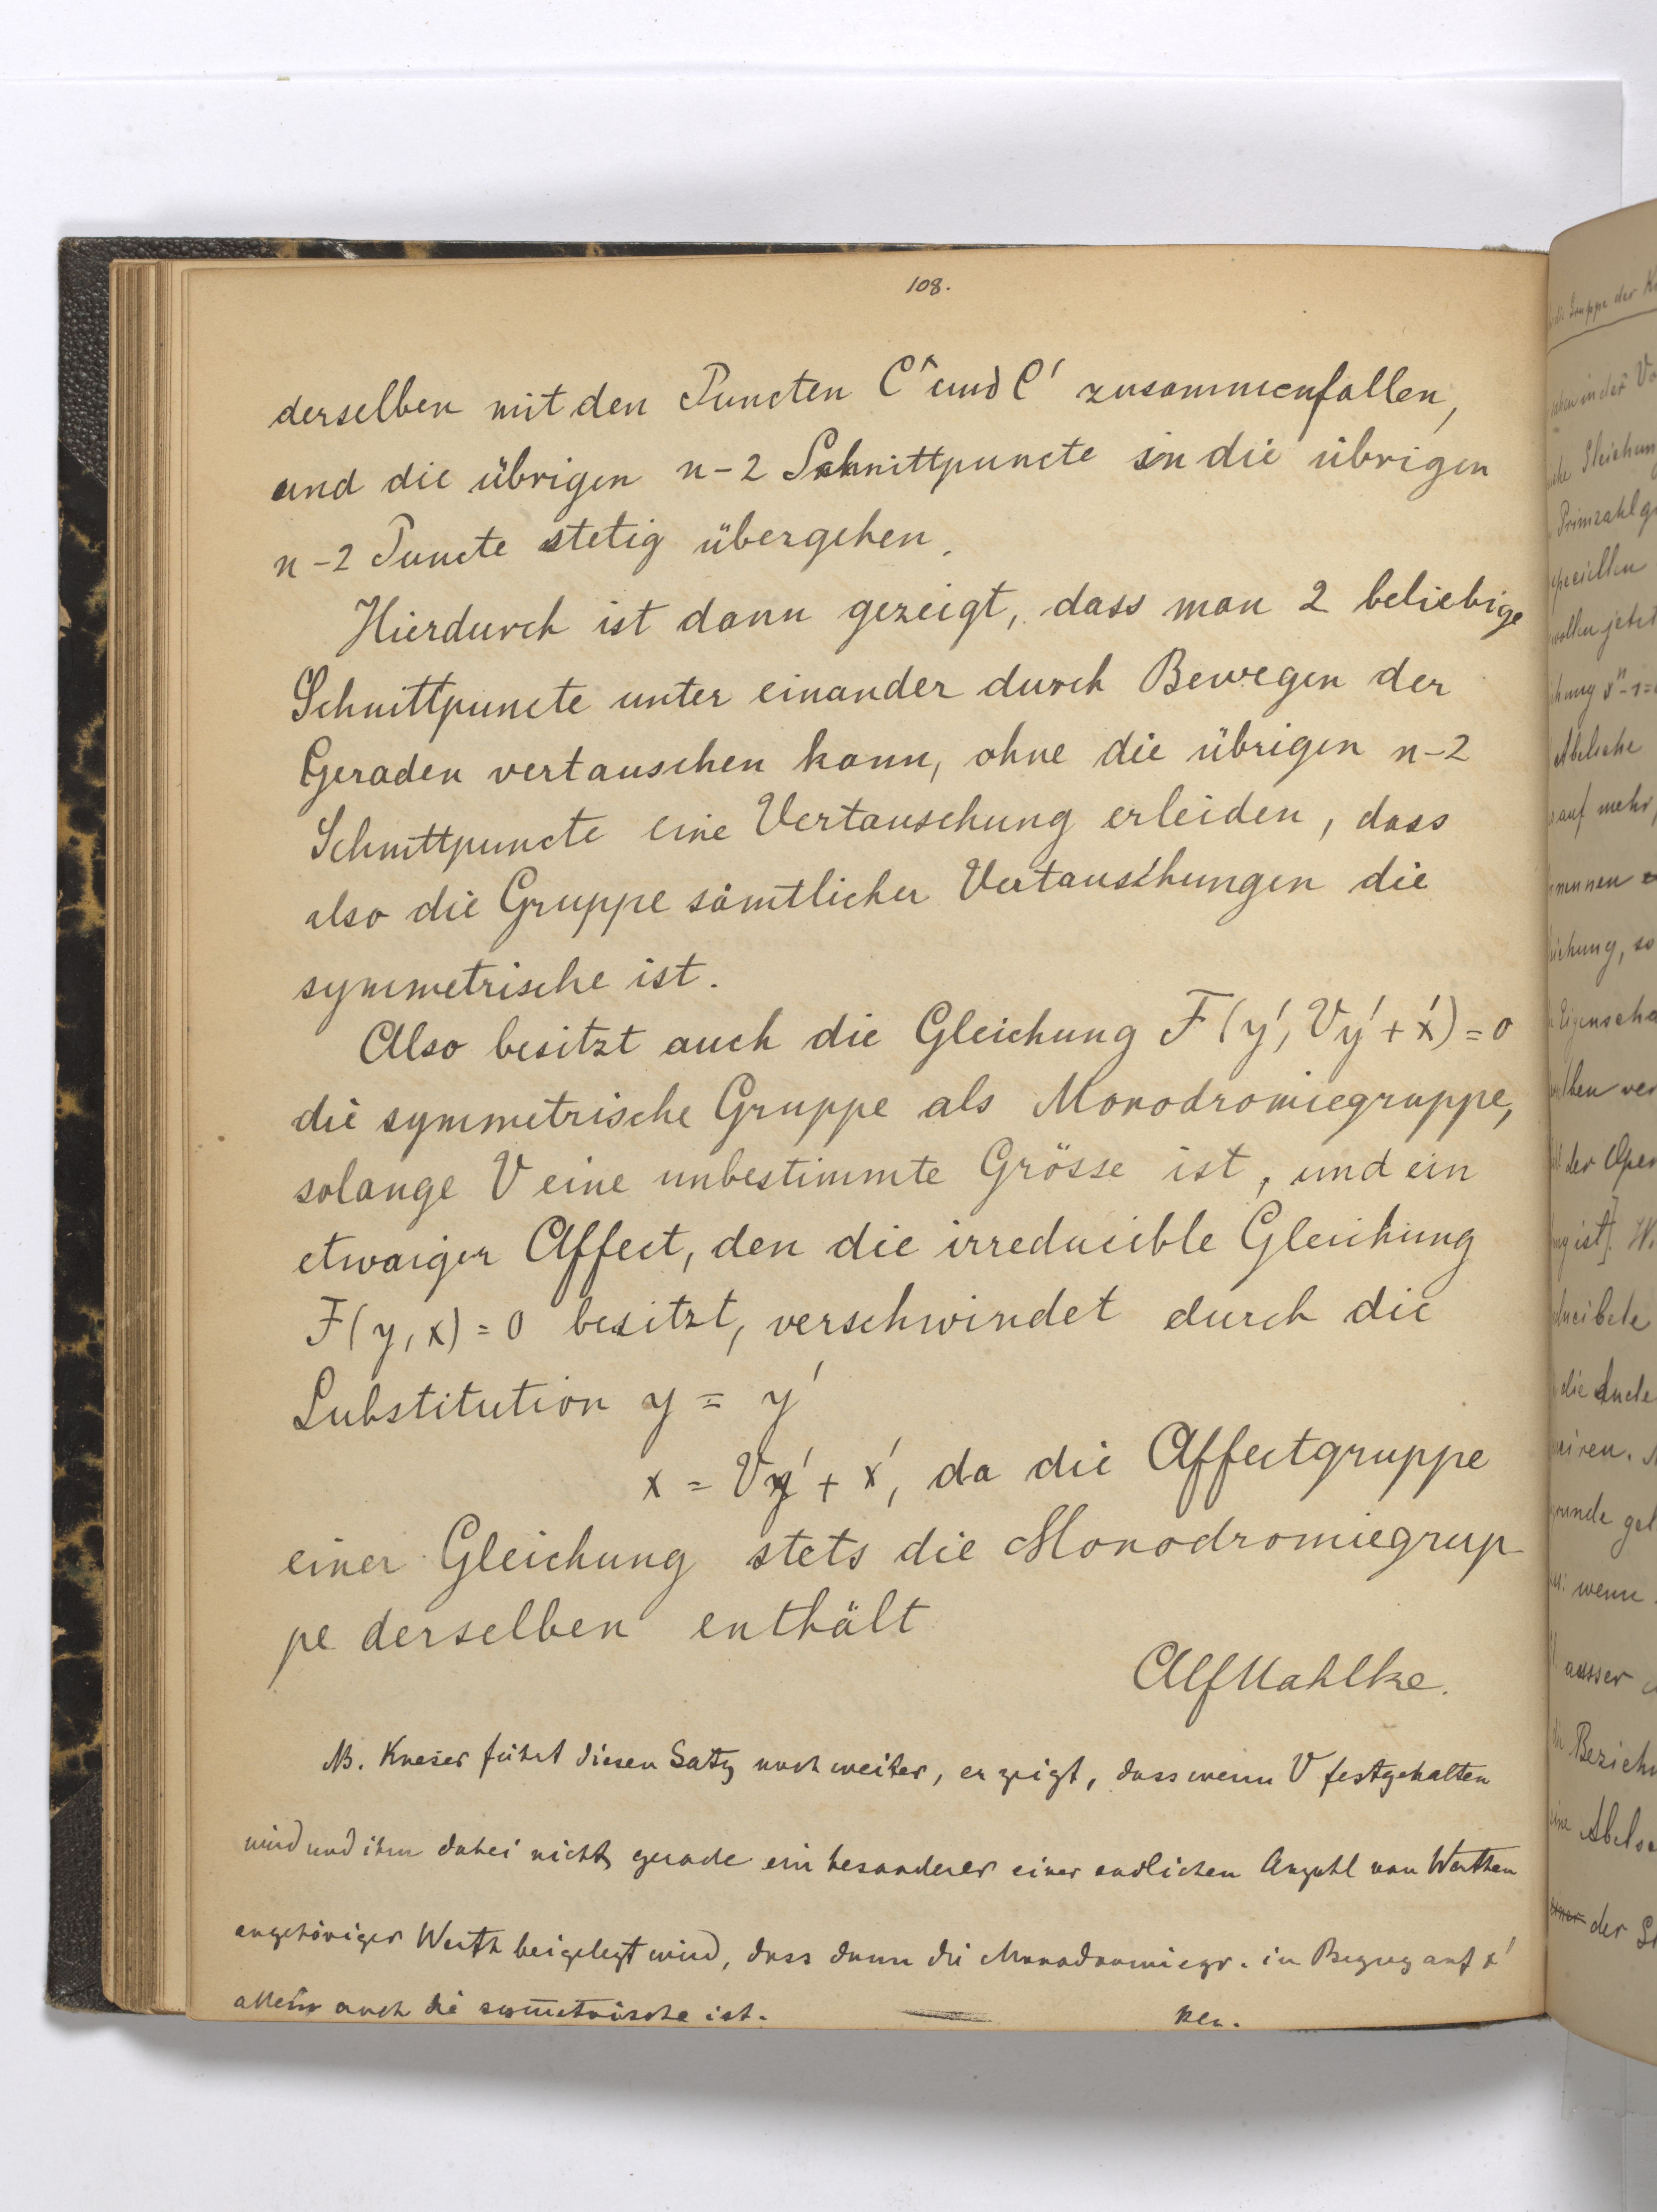 108.
derselben mit den Puncten C^ und C' zusammenfallen,
und die übrigen n-2 Schnittpuncte in die übrigen
n-2 Puncte stetig übergehen.
Hierdurch ist dann gezeigt, dass man 2 beliebige
Schnittpuncte unter einander durch Bewegen der
Geraden vertauschen kann, ohne die übrigen n-2
Schnittpuncte eine Vertauschung erleiden, dass
also die Gruppe sämtlicher Vertauschungen die
symmetrische ist.
Also besitzt auch die Gleichung F(y', Vy' + x') = 0
die symmetrische Gruppe als Monodromiegruppe,
solange V eine unbestimmte Grösse ist, und ein
etwaiger Affect, den die irreducible Gleichung
F(y, x) = 0 besitzt, verschwindet durch die
Substitution y = y'
x = Vy' + x', da die Affectgruppe
einer Gleichung stets die Monodromiegrup
pe derselben enthält
Alf Mahlke.
NB. Kneser führt diesen Satz noch weiter, er zeigt, dass wenn V festgehalten
wird und ihm dabei nicht gerade ein besonderer einer endlichen Anzahl von Werthen
angehöriger Werth beigelegt wird, dass dann die Monodromiegr. in Bezug auf x'
allein auch die symmetrische ist.
der K
Gruppe
Gleichung
Primzahl
speciellen
wollen jetzt
Abelsche
auf mehr
nennen
der Oper
ist]. W
wenn
ausser
Bezieh
der